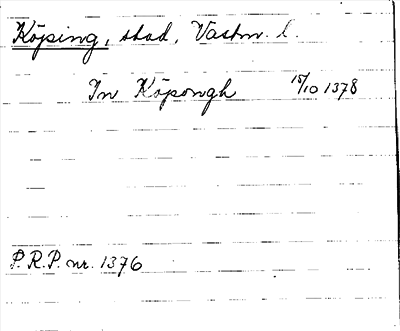 Köping, stad, Vastm. l.
In Köpongh 15/10 1378
P.R.P. nr. 1376